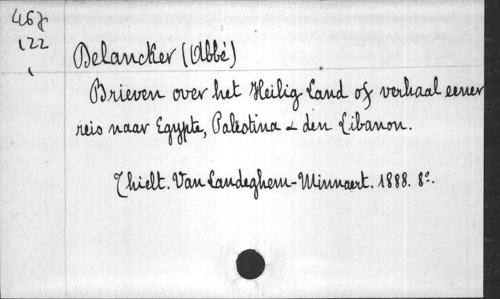 467
122
1
Delancker (Abbé)
Brieven over het Heilig Land of verhaal eener
reis naar Egypte, Palestina & den Libanon.
Thielt. Van Landeghem-Minnaert. 1888. 8º.